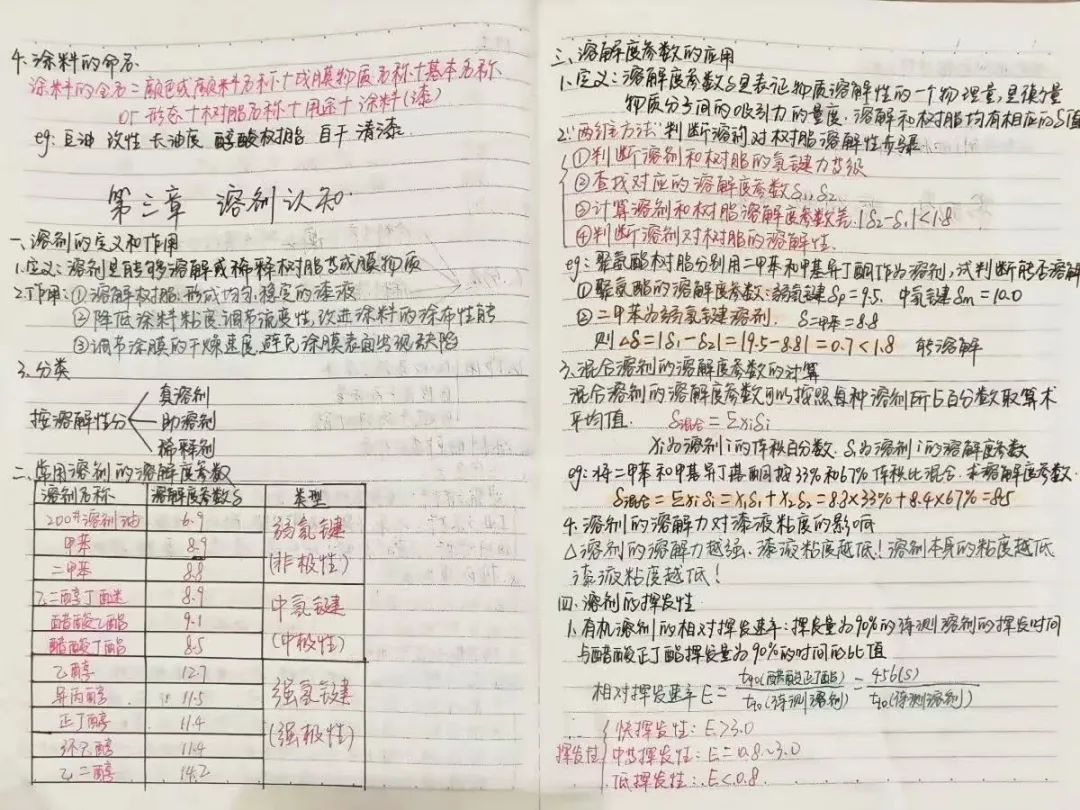 4.涂料的命名
涂料的全名=颜色或颜料名称+成膜物质名称+基本名称
or 形态+树脂名称+用途+涂料(漆)
eg:豆油 改性 长油度 醇酸树脂 自干 清漆
第三章 溶剂认知
一、溶剂的定义和作用
1.定义:溶剂是能够溶解或稀释树脂等成膜物质
2.作用:①溶解树脂,形成均匀,稳定的漆液
②降低涂料粘度,调节流变性,改进涂料的涂布性能
③调节涂膜的干燥速度,避免涂膜表面出现缺陷
3.分类
按溶解性分
真溶剂
助溶剂
稀释剂
二、常用溶剂的溶解度参数
溶剂名称 溶解度参数δ 类型
200#溶剂油 6.9 弱氢键
甲苯 8.9 (非极性)
二甲苯 8.8
乙二醇丁醚 8.9 中氢键
醋酸乙酯 9.1 (中极性)
醋酸丁酯 8.5
乙醇 12.7 强氢键
异丙醇 11.5 (强极性)
正丁醇 11.4
环己醇 11.4
乙二醇 14.2
三、溶解度参数的应用
1.定义:溶解度参数δ是表征物质溶解性的一个物理量,是衡量
物质分子间的吸引力的量度,溶解和树脂均有相应的δ值
2."两维方法"判断溶剂对树脂溶解性步骤
①判断溶剂和树脂的氢键力等级
②查找对应的溶解度参数δ1,δ2
③计算溶剂和树脂溶解度参数差,|δ2-δ1|<1.8
④判断溶剂对树脂的溶解性
eg:聚氨酯树脂分别用二甲苯和甲基异丁酮作为溶剂,试判断能否溶解
①聚氨酯的溶解度参数:弱氢键δp=9.5, 中氢键δm=10.0
②二甲苯为弱氢键溶剂, δ二甲苯=8.8
则Δδ=|δ1-δ2|=|9.5-8.8|=0.7<1.8 能溶解
3.混合溶剂的溶解度参数的计算
混合溶剂的溶解度参数可以按照每种溶剂所占百分数取算术
平均值. δ混合=Σxiδi
xi为溶剂i的体积百分数,δi为溶剂i的溶解度参数
eg:将二甲苯和甲基异丁基酮按33%和67%体积比混合,求溶解度参数.
δ混合=Σxiδi=x1δ1+x2δ2=8.8×33%+8.4×67%=8.5
4.溶剂的溶解力对漆液粘度的影响
△溶剂的溶解力越强,漆液粘度越低!溶剂本身的粘度越低
漆液粘度越低!
四.溶剂的挥发性
1.有机溶剂的相对挥发速率:挥发量为90%的待测溶剂的挥发时间
与醋酸正丁酯挥发量为90%的时间的比值
相对挥发速率E=t90(醋酸正丁酯)/t90(待测溶剂)=456(s)/t90(待测溶剂)
挥发性
快挥发性:E>3.0
中等挥发性:E=0.8~3.0
低挥发性:E<0.8.